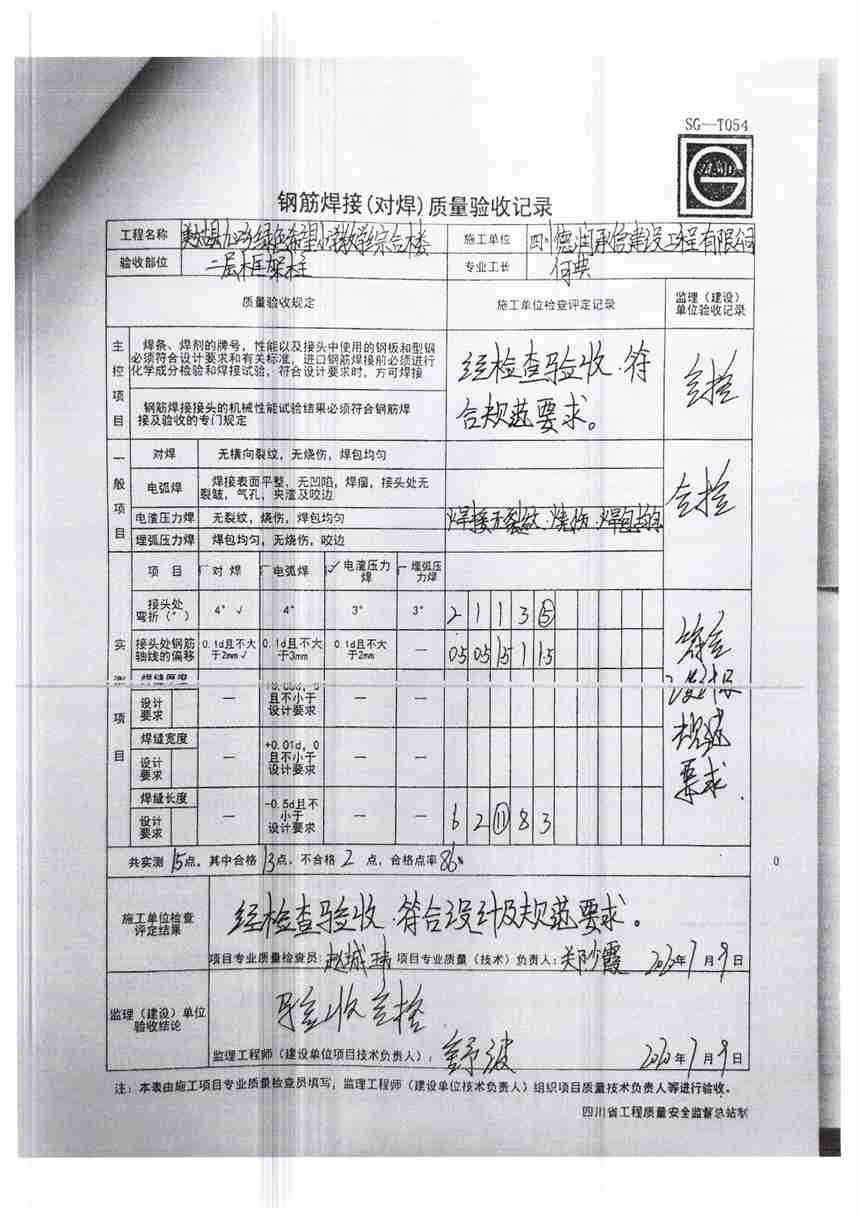 SG—T054
钢筋焊接(对焊)质量验收记录
工程名称 绿色希望小学教学综合楼 施工单位 四川德润承信建设工程有限公司
验收部位 二层框架柱 专业工长 何典
质量验收规定 施工单位检查评定记录 监理（建设）单位验收记录
主控项目
焊条、焊剂的牌号，性能以及接头中使用的钢板和型钢
必须符合设计要求和有关标准，进口钢筋焊接前必须进行
化学成分检验和焊接试验，符合设计要求时，方可焊接
经检查验收.符
合规范要求。
合格
钢筋焊接接头的机械性能试验结果必须符合钢筋焊
接及验收的专门规定
一般项目
对焊 无横向裂纹，无烧伤，焊包均匀
电弧焊 焊接表面平整，无凹陷，焊瘤，接头处无
裂皱，气孔，夹渣及咬边
合格
电渣压力焊 无裂纹，烧伤，焊包均匀 焊接无裂纹.烧伤.焊包均匀
埋弧压力焊 焊包均匀，无烧伤，咬边
项 目 对 焊 电弧焊 ✓ 电渣压力焊 埋弧压力焊
接头处弯折（°） 4° √ 4° 3° 3° 2 1 1 3 ⑤
实 接头处钢筋轴线的偏移 0.1d且不大于2mm √ 0.1d且不大于3mm 0.1d且不大于2mm — 0.5 0.5 1.5 1 1.5
项目
设计要求 — 且不小于设计要求 — —
焊缝宽度
设计要求 — +0.01d，0且不小于设计要求 — —
规范
要求
焊缝长度
设计要求 — -0.5d且不小于设计要求 — — 6 2 ⑪ 8 3
共实测 15点，其中合格 13点，不合格 2 点，合格点率86%
0
施工单位检查评定结果
经检查验收.符合设计及规范要求。
项目专业质量检查员： 项目专业质量（技术）负责人： 2020年7月9日
监理（建设）单位验收结论
验收合格
监理工程师（建设单位项目技术负责人）： 舒波 2020年7月9日
注：本表由施工项目专业质量检查员填写，监理工程师（建设单位技术负责人）组织项目质量技术负责人等进行验收。
四川省工程质量安全监督总站制